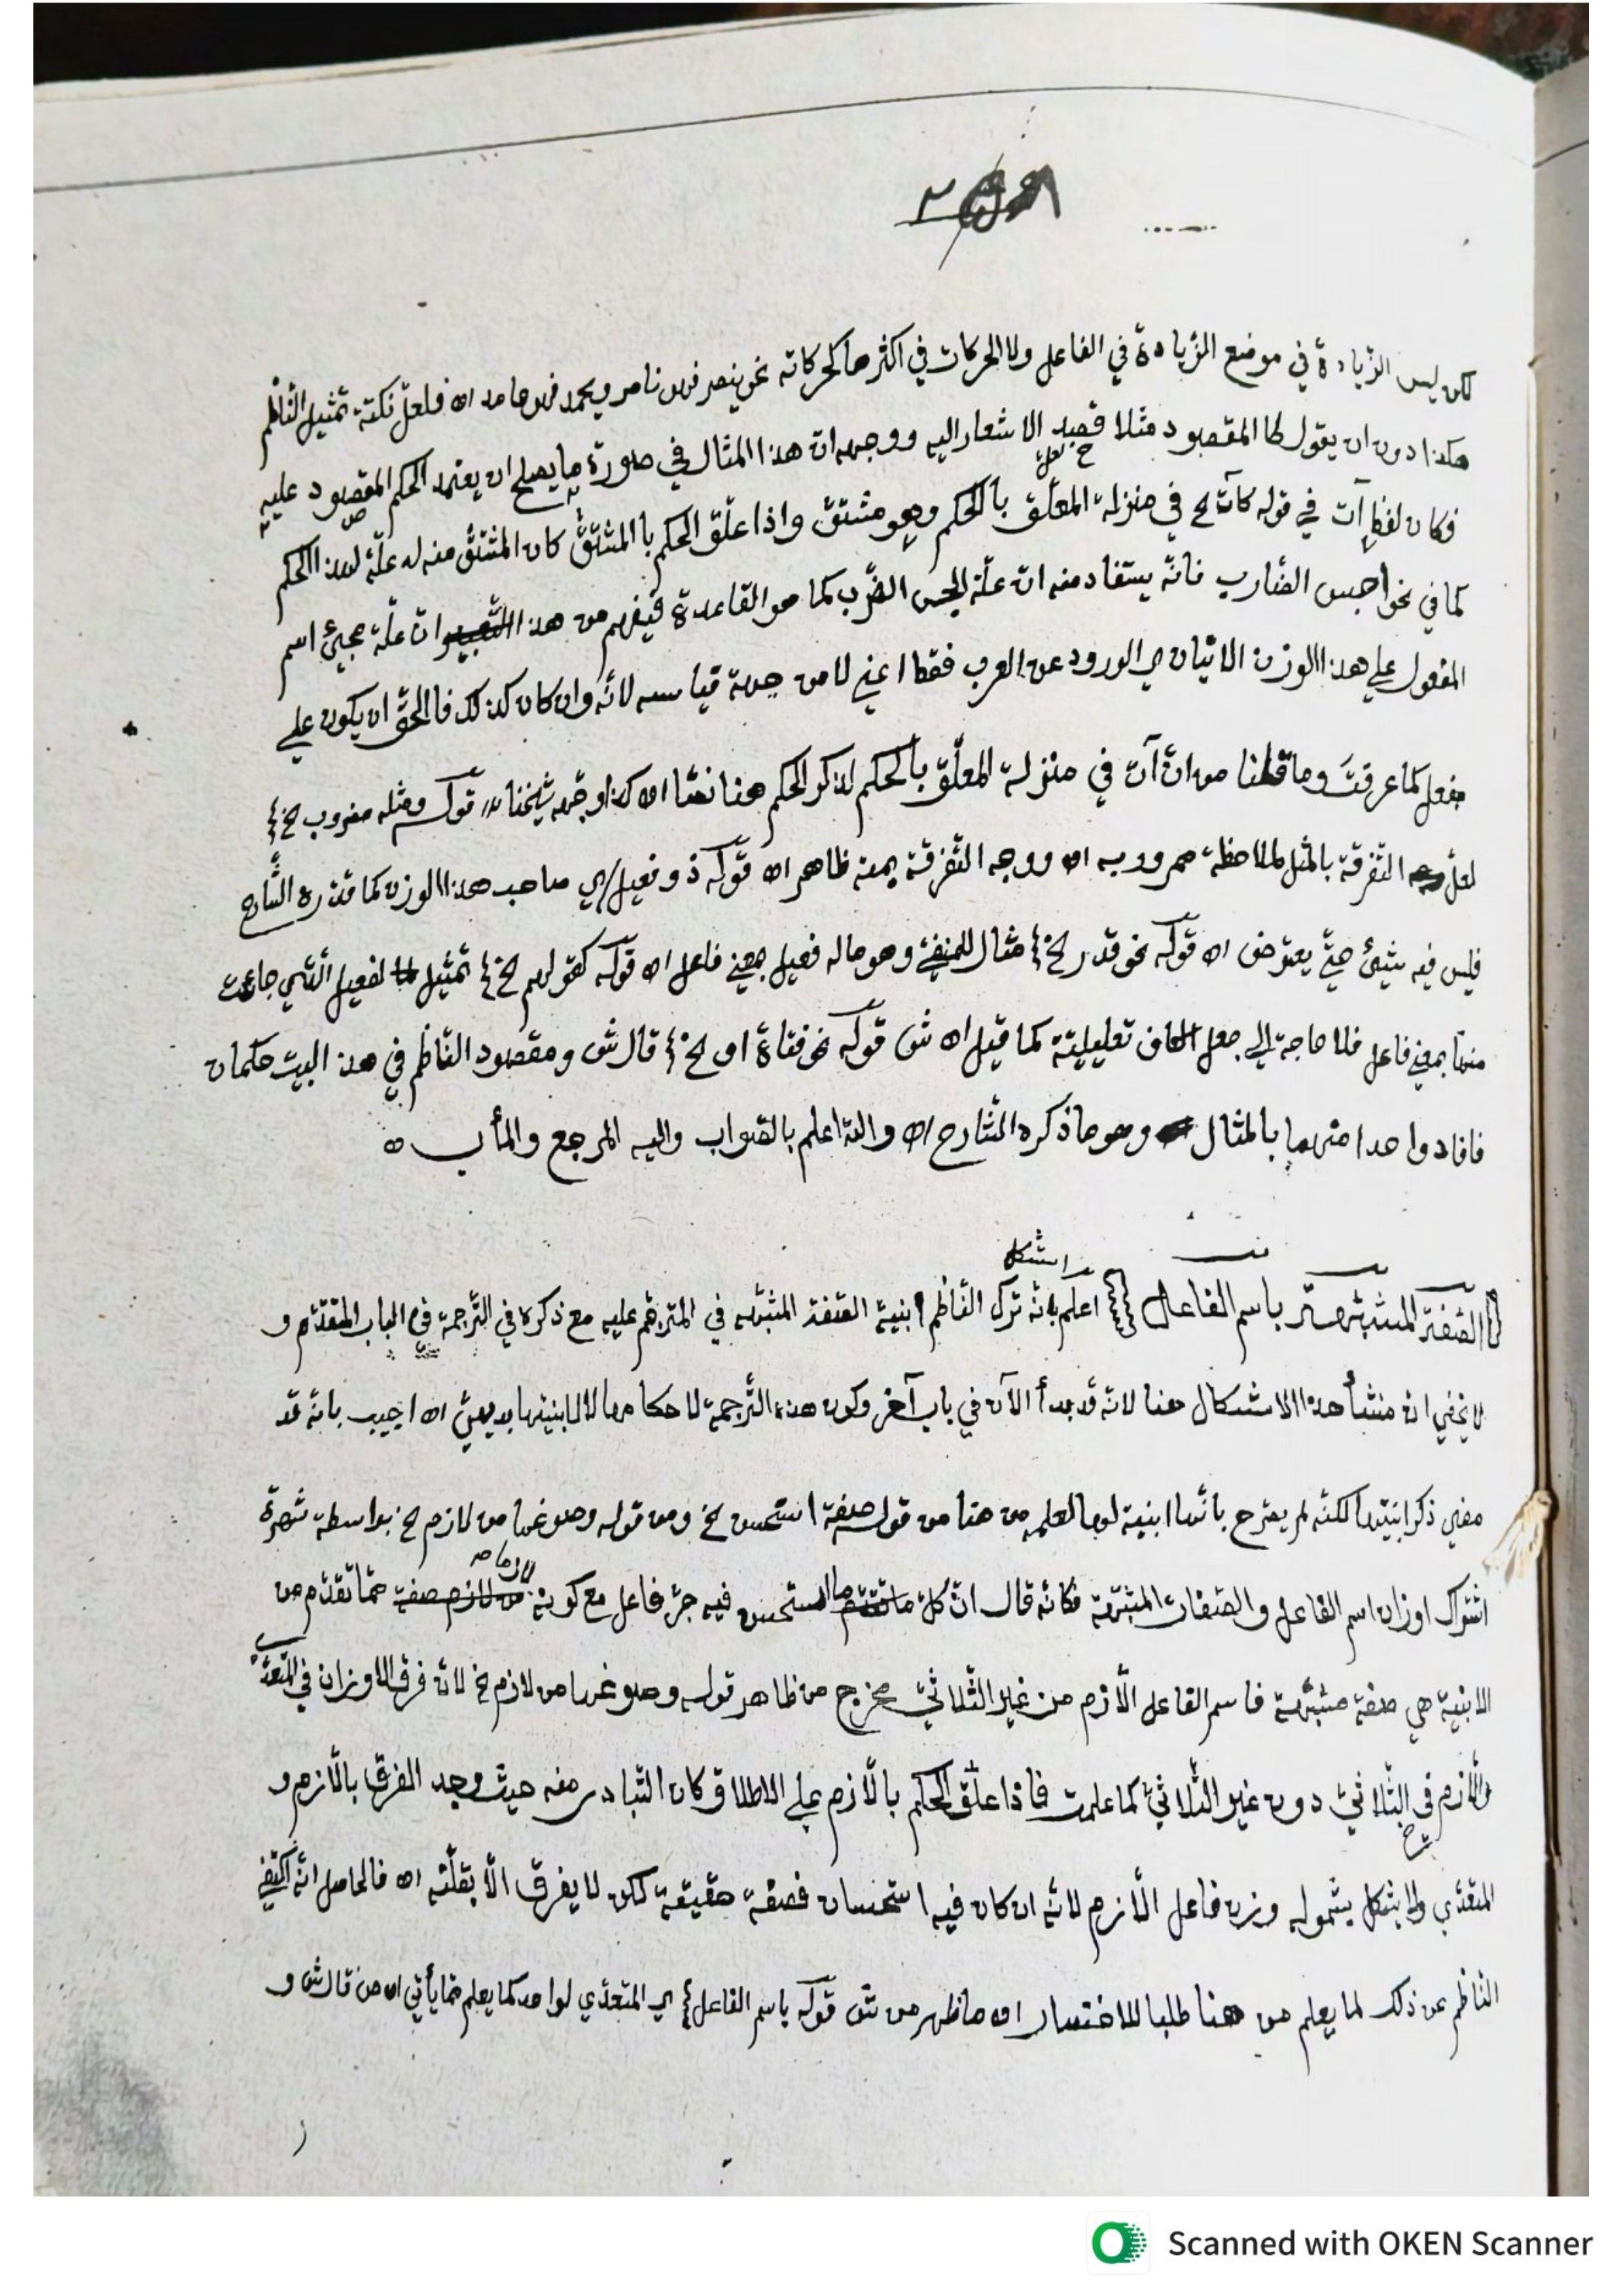 لكن ليس الزّيادة في موضع الزّيادة في الفاعل ولا الحركات في اكثرها كحركاته نحو ينصر فهو ناصر ويحمد فهو حامد اه فلعلّ نكتة تمثيل النّاظم
هكذا دون ان يقول كا المقصود مثلا قصد الاشعار اليه ووجهه انّ هذا المثال في صورة ما يصلح ان يعتمد الحكم المقصود عليه
فكان لفظ آت في قوله كآت لخ في منزلة المعلّق بالحكم وهو مشتقّ واذا علّق الحكم بالمشتقّ كان المشتقّ منه له علّة لهذا الحكم
كما في نحو احبس الضّارب فانّه يستفاد منه انّ علّة الحبس الضّرب كما هو القاعدة فيفهم من هذا التّعبير انّ علّة مجيئ اسم
المفعول على هذا الوزن الاتيان اي الورود عن العرب فقط اعني لا من جهة قياسه لانّه وان كان كذلك فالحقّ ان يكون على
مفعل كما عرفتَ وما قلنا من انّ آت في منزلة المعلّق بالحكم لذكر الحكم هنا نصّا اه كذا وجّهه شيخنا قوله ومثله مضروب لخ
لعلّ التّفرقة بالمثل لملاحظة ممرور به اه ووجه التّفرقة يمنة ظاهر اه قوله ذو فعيل اي صاحب هذا الوزن كما قدّره الشّارح
فليس فيه شيئ حتّى يعترض اه قوله نحو قدر لخ مثال للمنفيّ وهو ماله فعيل بمعنى فاعل اه قوله كقولهم لخ تمثيل لفعيل الّتي جاءت
منها بمعنى فاعل فلا حاجة الى جعل الكاف تعليليّة كما قيل اه ش قوله نحو فتاة او لخ قال ش ومقصود النّاظم في هذا البيت حكمان
فافاد واحدا منهما بالمثال وهو ما ذكره الشّارح اه والله اعلم بالصّواب واليه المرجع والمأب
الصّفة المشبّهة باسم الفاعل اعلم بانّه ترك النّاظم ابنية الصّفة المشبّهة في المترجم عليه مع ذكره في التّرجمة في الباب المتقدّم و
استشكل
لا يخفى انّ منشأ هذا الاشكال هنا لانّه قد بدأ الآن في باب آخر وكون هذه التّرجمة لاحكامها لا لابنيتها بديهيّ اه اجيب بانّه قد
مضى ذكر ابنيّتها لكنّه لم يصّرح بانّها ابنية لها لعلمه من هنا من قوله صفة استحسن لخ ومن قوله وصوغها من لازم لخ بواسطة شهرة
اشتراك اوزان اسم الفاعل والصّفات المشبّهة فكانّه قال انّ كلّ ما استحسن فيه جرّ فاعل مع كونه لازما ممّا تقدّم من
الابنية هي صفة مشبّهة فاسم الفاعل الّلازم من غير الثّلاثيّ مخرج من ظاهر قوله وصوغها من لازم لخ لانّه فرق الاوزان في المتعدّي
والّلازم في الثّلاثيّ دون غير الثّلاثيّ كما علمت فاذا علّق الحكم بالّلازم على الاطلاق كان التّبادر منه حيث وجد الفرق بالّلازم و
المتعدّي ولا يشكل بشموله وزن فاعل الّلازم لانّه ان كان فيه استحسان فصفة حقيقة لكن لا يفرق الّا بقلّته اه فالحاصل انّه اكتفى
النّاظم عن ذلك لما يعلم من هنا طلبا للاختصار اه ما ظهر من ش قوله باسم الفاعل اي المتعدّي لواحد كما يعلم ممّا يأتي اه من قال ش و
Scanned with OKEN Scanner